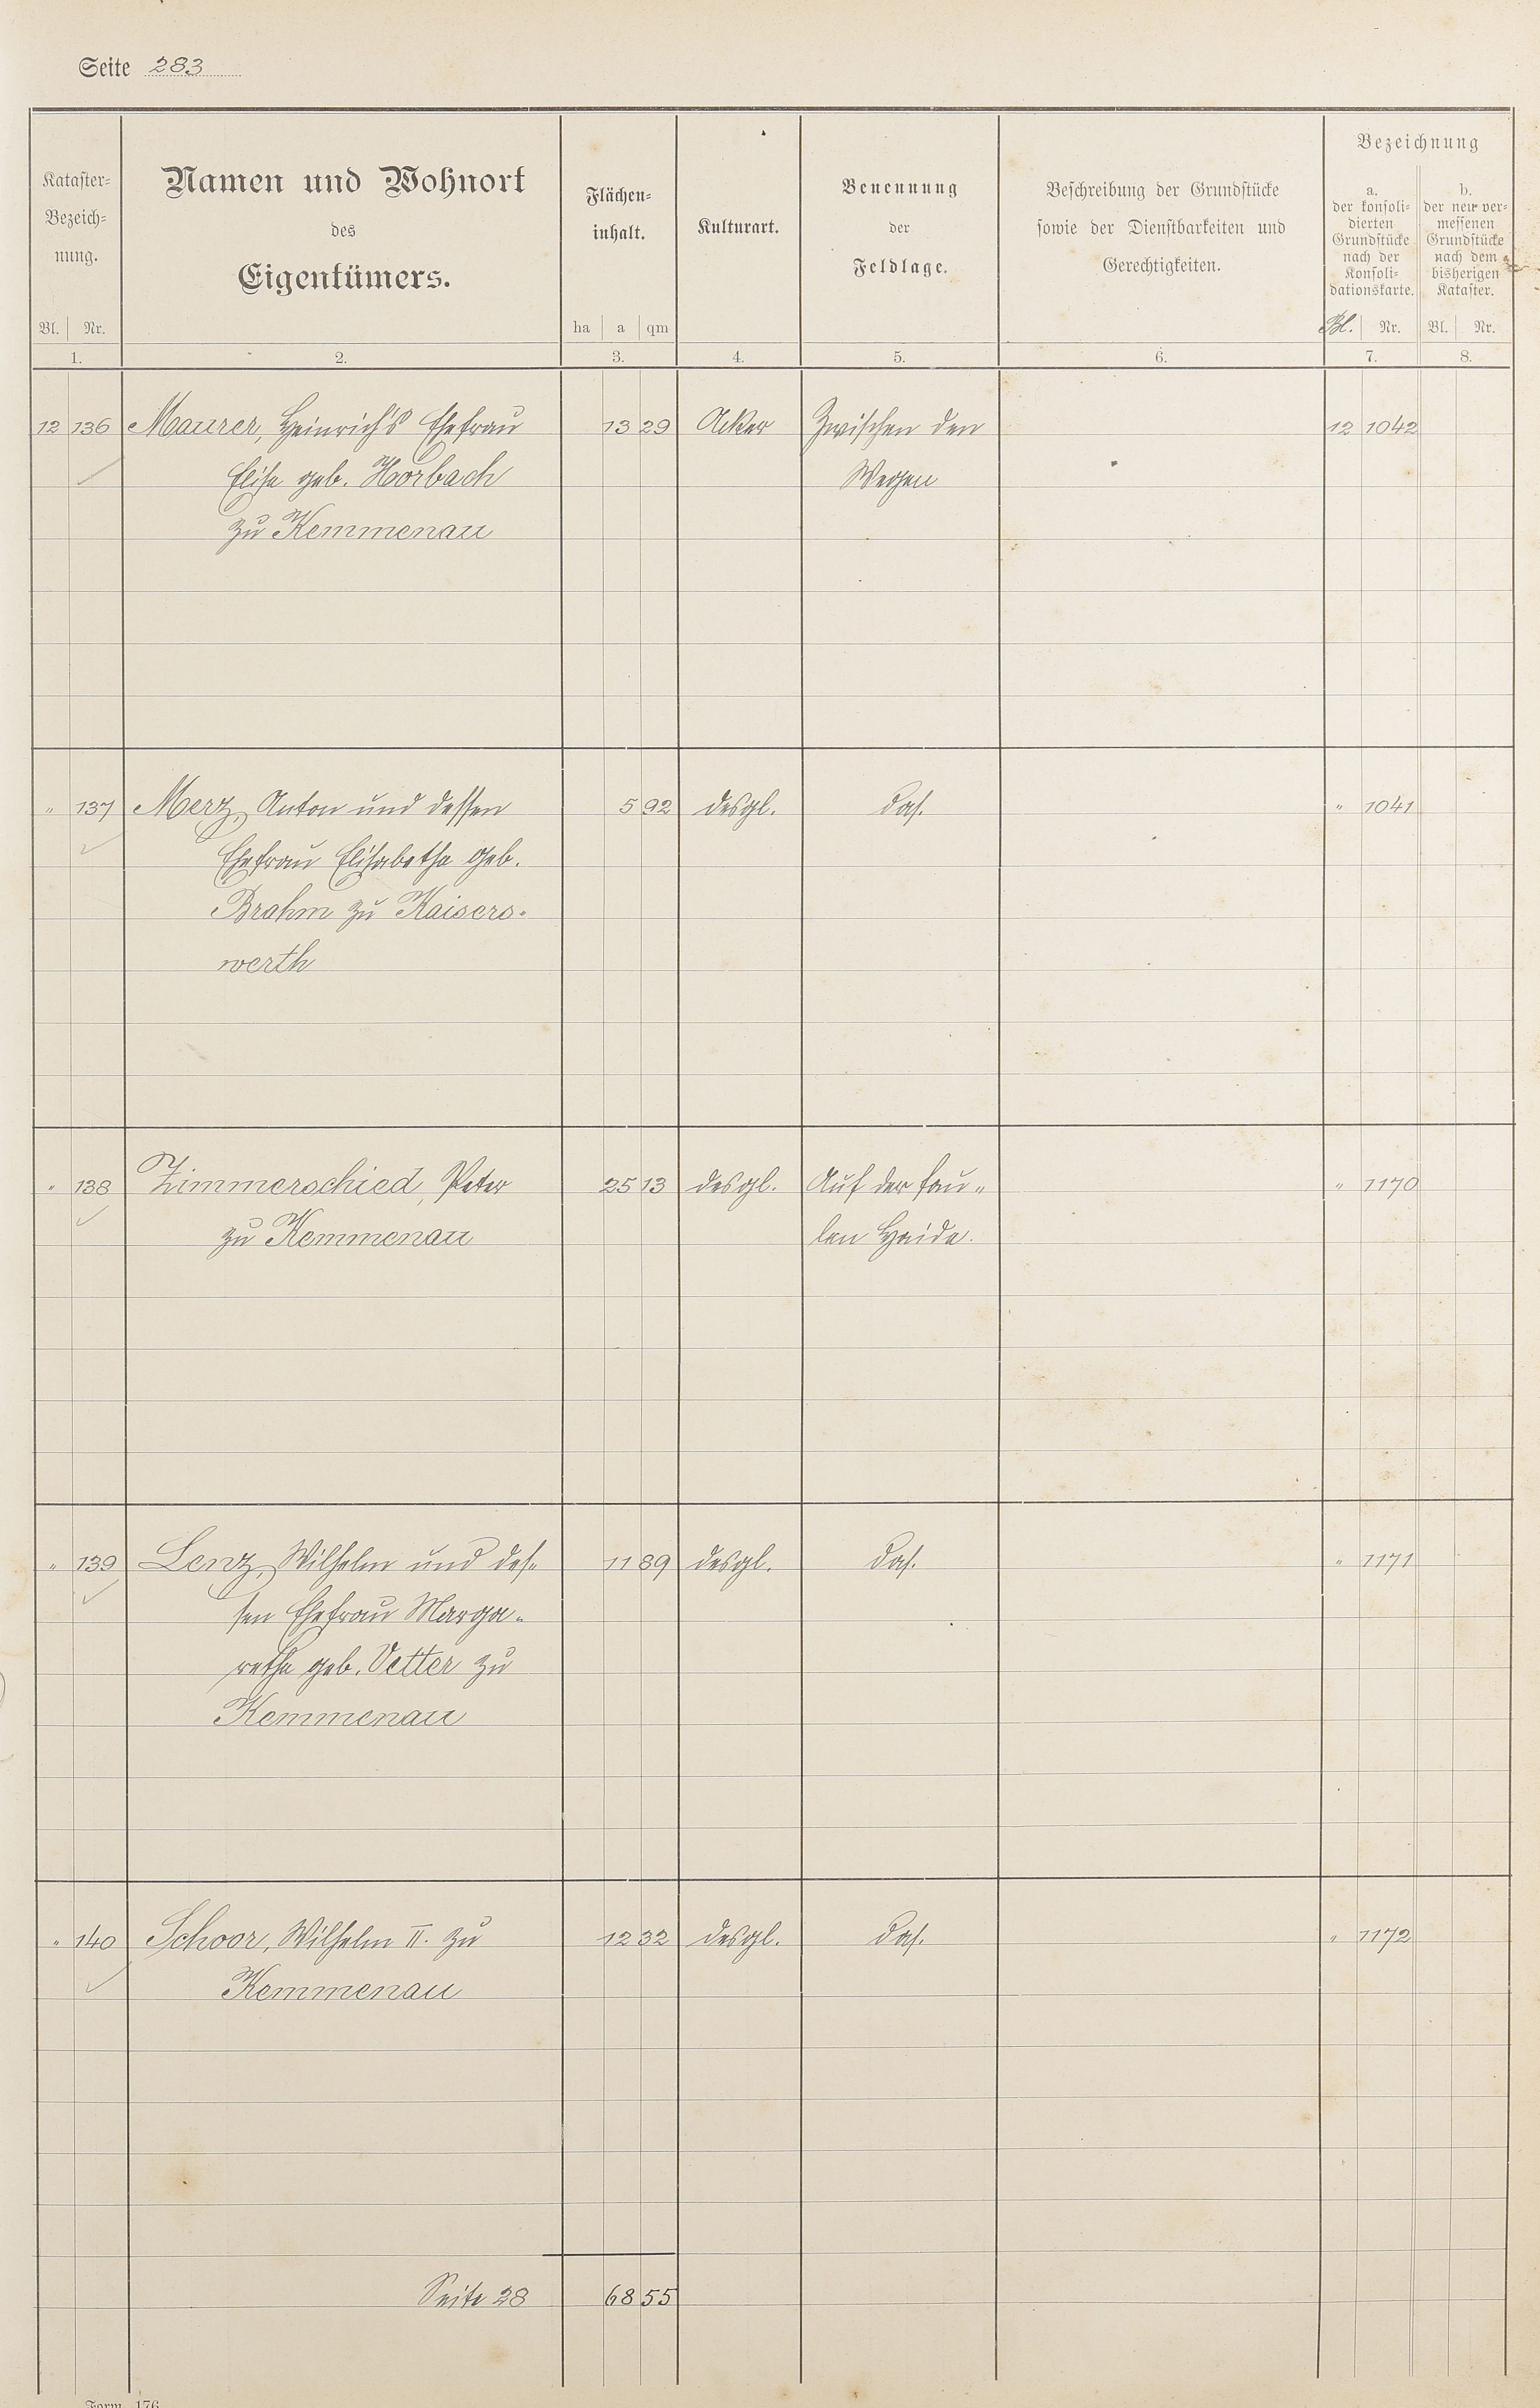 Seite 283
Kataster-
Bezeich-
nung.
Bl. Nr.
1.
Namen und Wohnort
des
Eigentümers.
2.
Flächen-
inhalt.
ha a qm
3.
Kulturart.
4.
Benennung
der
Feldlage.
5.
Beschreibung der Grundstücke
sowie der Dienstbarkeiten und
Gerechtigkeiten.
6.
Bezeichnung
a.
der konsoli-
dierten
Grundstücke
nach der
Konsoli-
dationskarte.
Bl. Nr.
7.
b.
der neu ver-
messenen
Grundstücke
nach dem
bisherigen
Kataster.
Bl. Nr.
8.
12 136 Maurer, Heinrich's Ehefrau 13 29 Acker Zwischen den 12 1042
Elise geb. Horbach Wegen
zu Kemmenau
" 137 Merz, Anton und dessen 5 92 desgl. das. " 1041
Ehefrau Elisabetha geb.
Brahm zu Kaisers-
werth
" 138 Zimmerschied, Peter 25 13 desgl. Auf der fau- " 1170
zu Kemmenau len Heide.
" 139 Lenz, Wilhelm und des- 11 89 desgl. das. " 1171
sen Ehefrau Marga-
retha geb. Vetter zu
Kemmenau
" 140 Schoor, Wilhelm II. zu 12 32 desgl. das. " 1172
Kemmenau
Seite 28 68 55
Form. 176